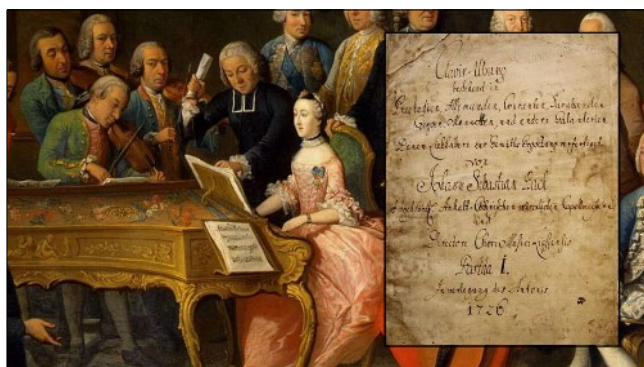 Clavir Ubung
bestehend in
Præludien, Allemanden, Couranten, Sarabanden
Giguen, Menuetten, und andern Galanterien
Denen Liebhabern zur Gemüths Ergoetzung verfertiget
von
Johann Sebastian Bach
Hochfürstl. Anhalt-Cöthnischen würcklichen Capellmeistern
und
Directore Chori Musici Lipsiensis
Partita I.
In Verlegung des Autoris
1726